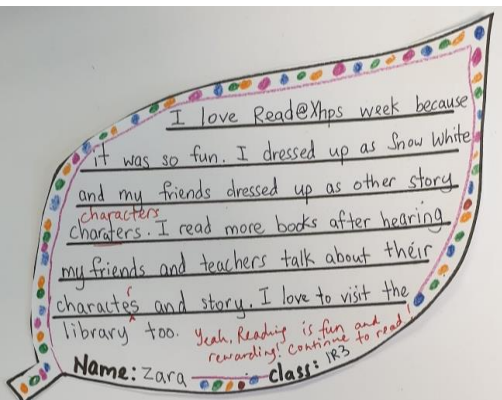 I love Read@Xhps week because
it was so fun. I dressed up as Snow White
and my friends dressed up as other story
characters
charaters. I read more books after hearing
my friends and teachers talk about their
r
charactes and story. I love to visit the
library too. Yeah, Reading is fun and
rewarding! Continue to read!
Name: Zara Class: 1R3